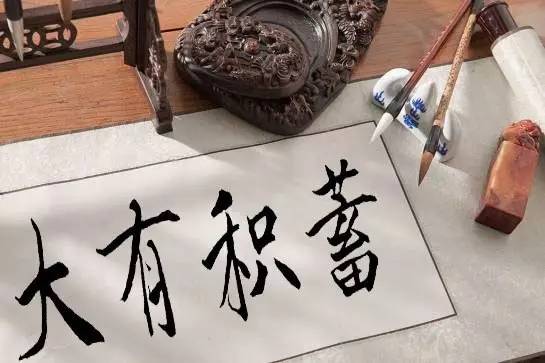 大有积蓄